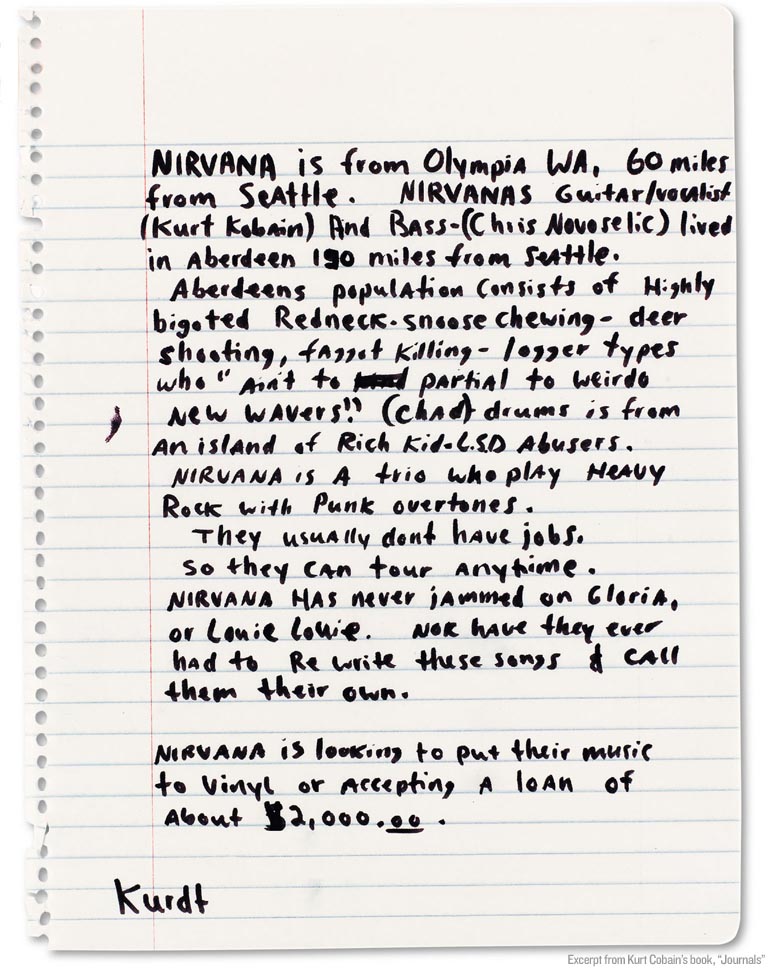 NIRVANA is from Olympia WA, 60 miles
from Seattle. NIRVANAS Guitar/vocalist
(Kurt Kobain) And Bass-(Chris Novoselic) lived
in Aberdeen 150 miles from Seattle.
Aberdeens population consists of Highly
bigoted Redneck-snoose chewing- deer
shooting, faggot killing- logger types
who "Ain't to partial to weirdo
New Wavers". (Chad) drums is from
an island of Rich Kid-LSD Abusers.
NIRVANA is A trio who play HEAVY
Rock with Punk overtones.
They usually dont have jobs.
So they CAN tour Anytime.
NIRVANA HAS never jammed on Gloria,
or Louie Louie. Nor have they ever
had to Re write these songs & CALL
them their own.
NIRVANA is looking to put their music
to Vinyl or Accepting A loan of
About $2,000.00.
Kurdt
Excerpt from Kurt Cobain's book, "Journals"